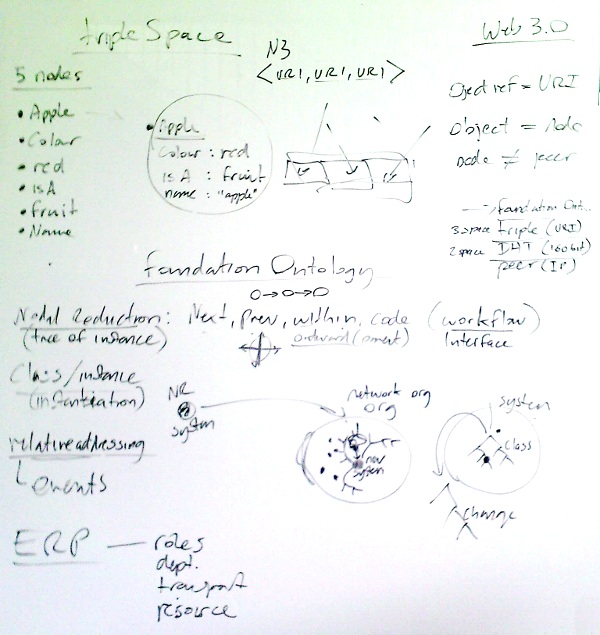 Triple Space
N3
<URI, URI, URI>
Web 3.0
5 nodes
• Apple
• Colour
• red
• isA
• fruit
• Name
• Apple
Colour : red
isA : fruit
name : "apple"
Object ref = URI
Object = Node
node ≠ peer
3space triple (URI)
2space DHT (160bit)
peer (IP)
Foundation Ontology
Nodal Reduction: Next, prev, within, code (workflow)
(tree of instance)
Interface
Class/instance
(instantiation)
NR
system
network org
org
new
system
system
class
change
relative addressing
events
ERP — roles
dept.
transport
resource